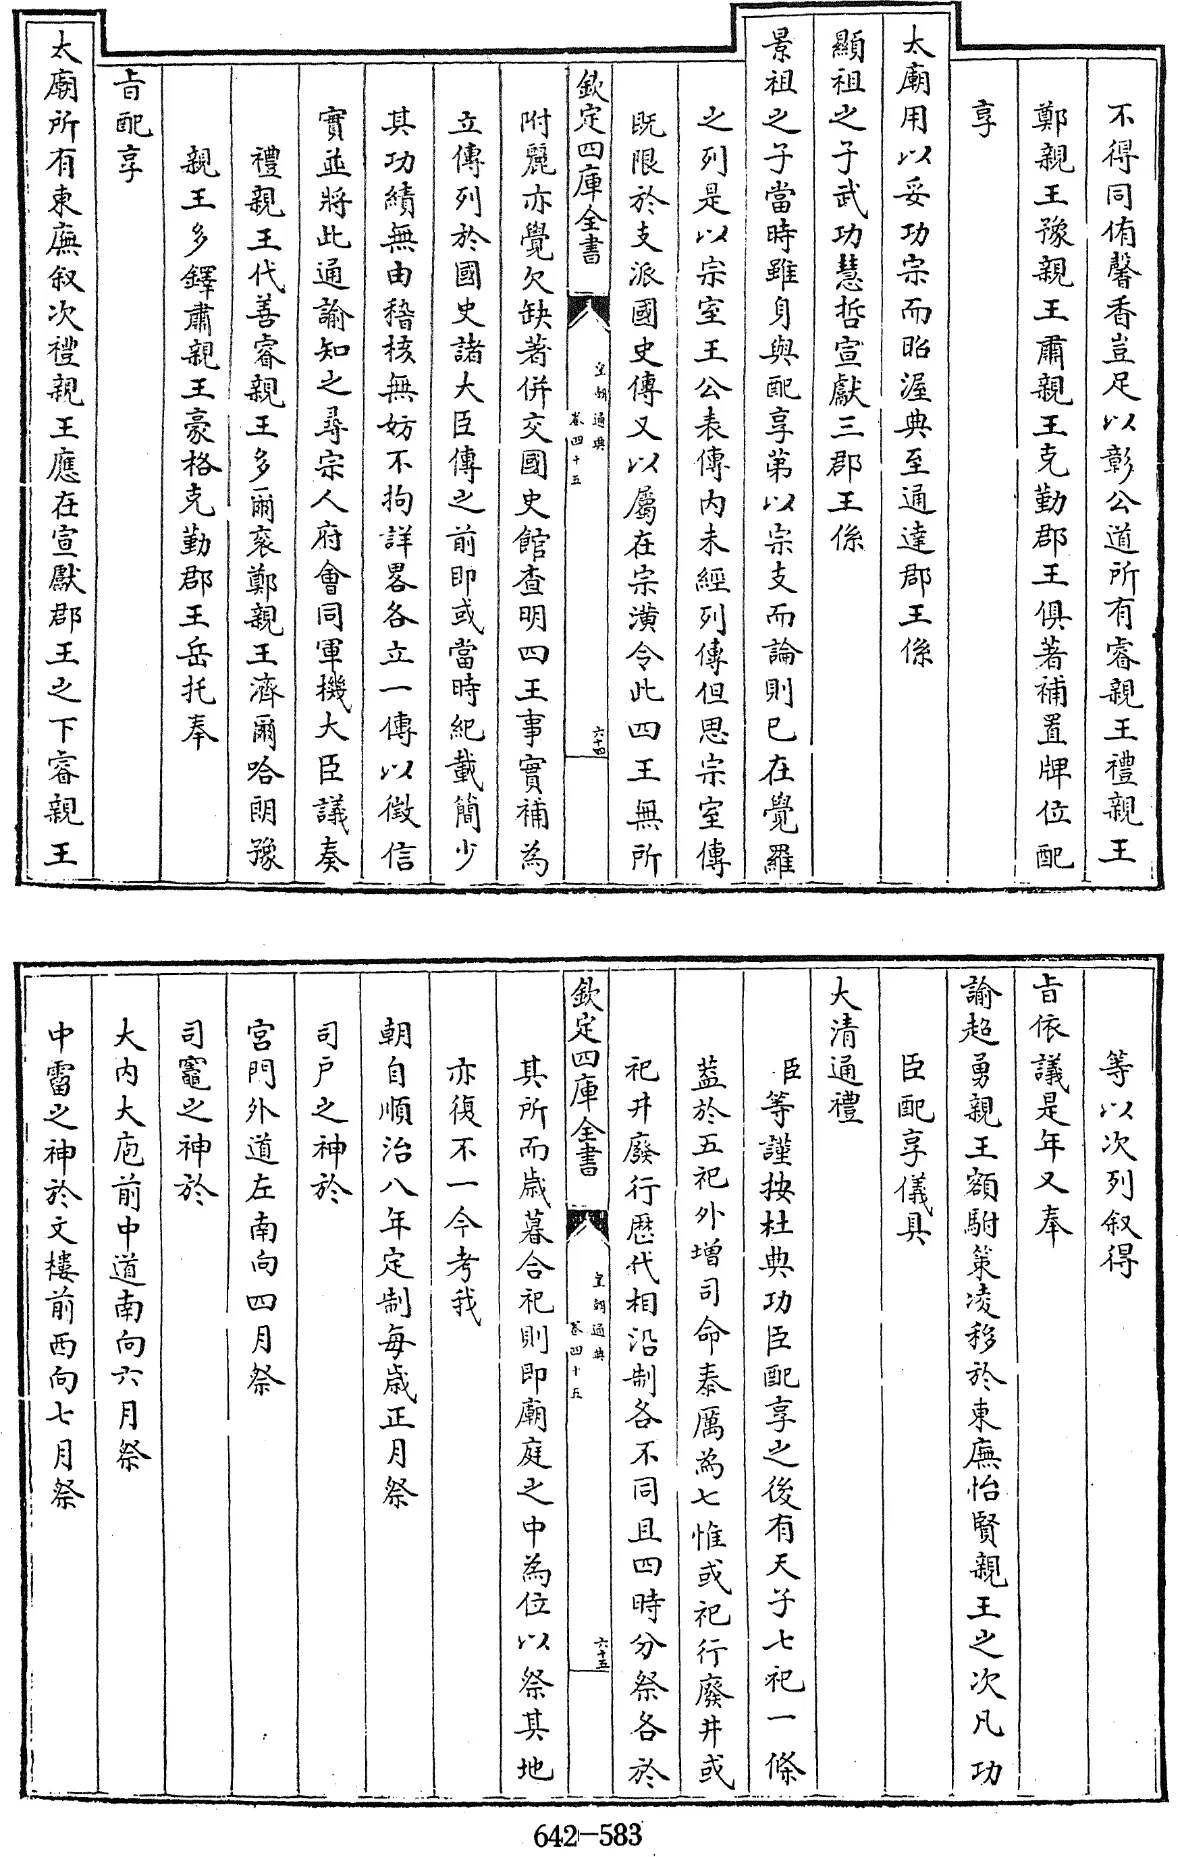 不得同侑馨香豈足以彰公道所有睿親王禮親王
鄭親王豫親王肅親王克勤郡王俱著補置牌位配
享
太廟用以妥功宗而昭渥典至通達郡王係
顯祖之子武功慧哲宣獻三郡王係
景祖之子當時雖身與配享第以宗支而論則已在覺羅
之列是以宗室王公表傳内未經列傳但思宗室傳
既限於支派國史傳又以屬在宗潢令此四王無所
欽定四庫全書
皇朝通典
卷四十五
六十四
附麗亦覺欠缺著併交國史館查明四王事實補為
立傳列於國史諸大臣傳之前即或當時紀載簡少
其功績無由稽核無妨不拘詳畧各立一傳以徵信
實並將此通諭知之尋宗人府會同軍機大臣議奏
禮親王代善睿親王多爾衮鄭親王濟爾哈朗豫
親王多鐸肅親王豪格克勤郡王岳托奉
旨配享
太廟所有東廡叙次禮親王應在宣獻郡王之下睿親王
等以次列叙得
旨依議是年又奉
諭超勇親王額駙策凌移於東廡怡賢親王之次凡功
臣配享儀具
大清通禮
臣等謹按杜典功臣配享之後有天子七祀一條
葢於五祀外增司命泰厲為七惟或祀行廢井或
祀井廢行歷代相沿制各不同且四時分祭各於
欽定四庫全書
皇朝通典
卷四十五
六十五
其所而歳暮合祀則即廟庭之中為位以祭其地
亦復不一今考我
朝自順治八年定制每歳正月祭
司户之神於
宮門外道左南向四月祭
司竈之神於
大内大庖前中道南向六月祭
中霤之神於文樓前西向七月祭
642-583